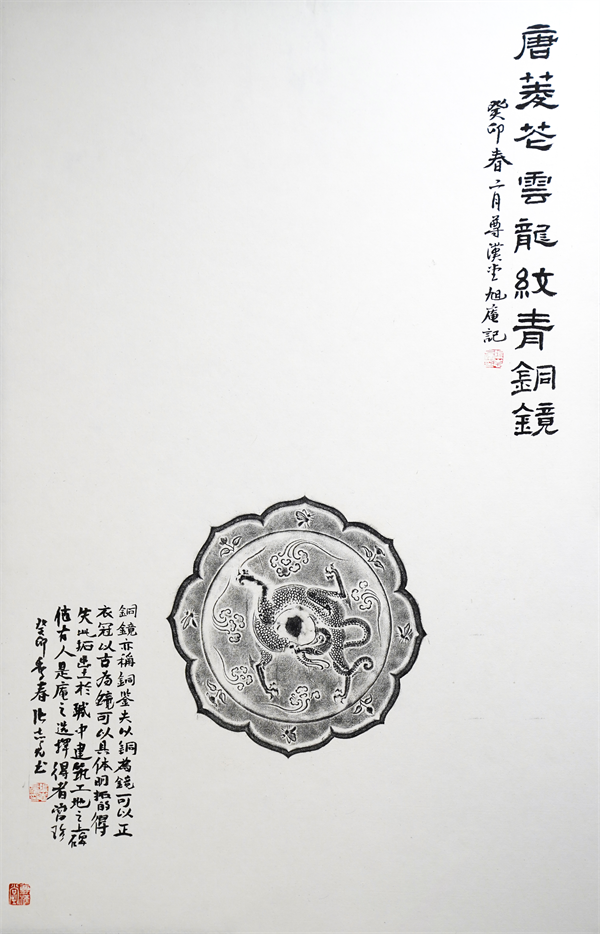 唐菱花雲龍紋青銅鏡
癸卯春二月尊漢堂旭庵記
銅鏡亦稱銅鉴夫以銅為鏡可以正
衣冠以古為鏡可以具体明
失此拓出土於城中建筑工地之
值古人是庵之选擇得者當珍
癸卯春